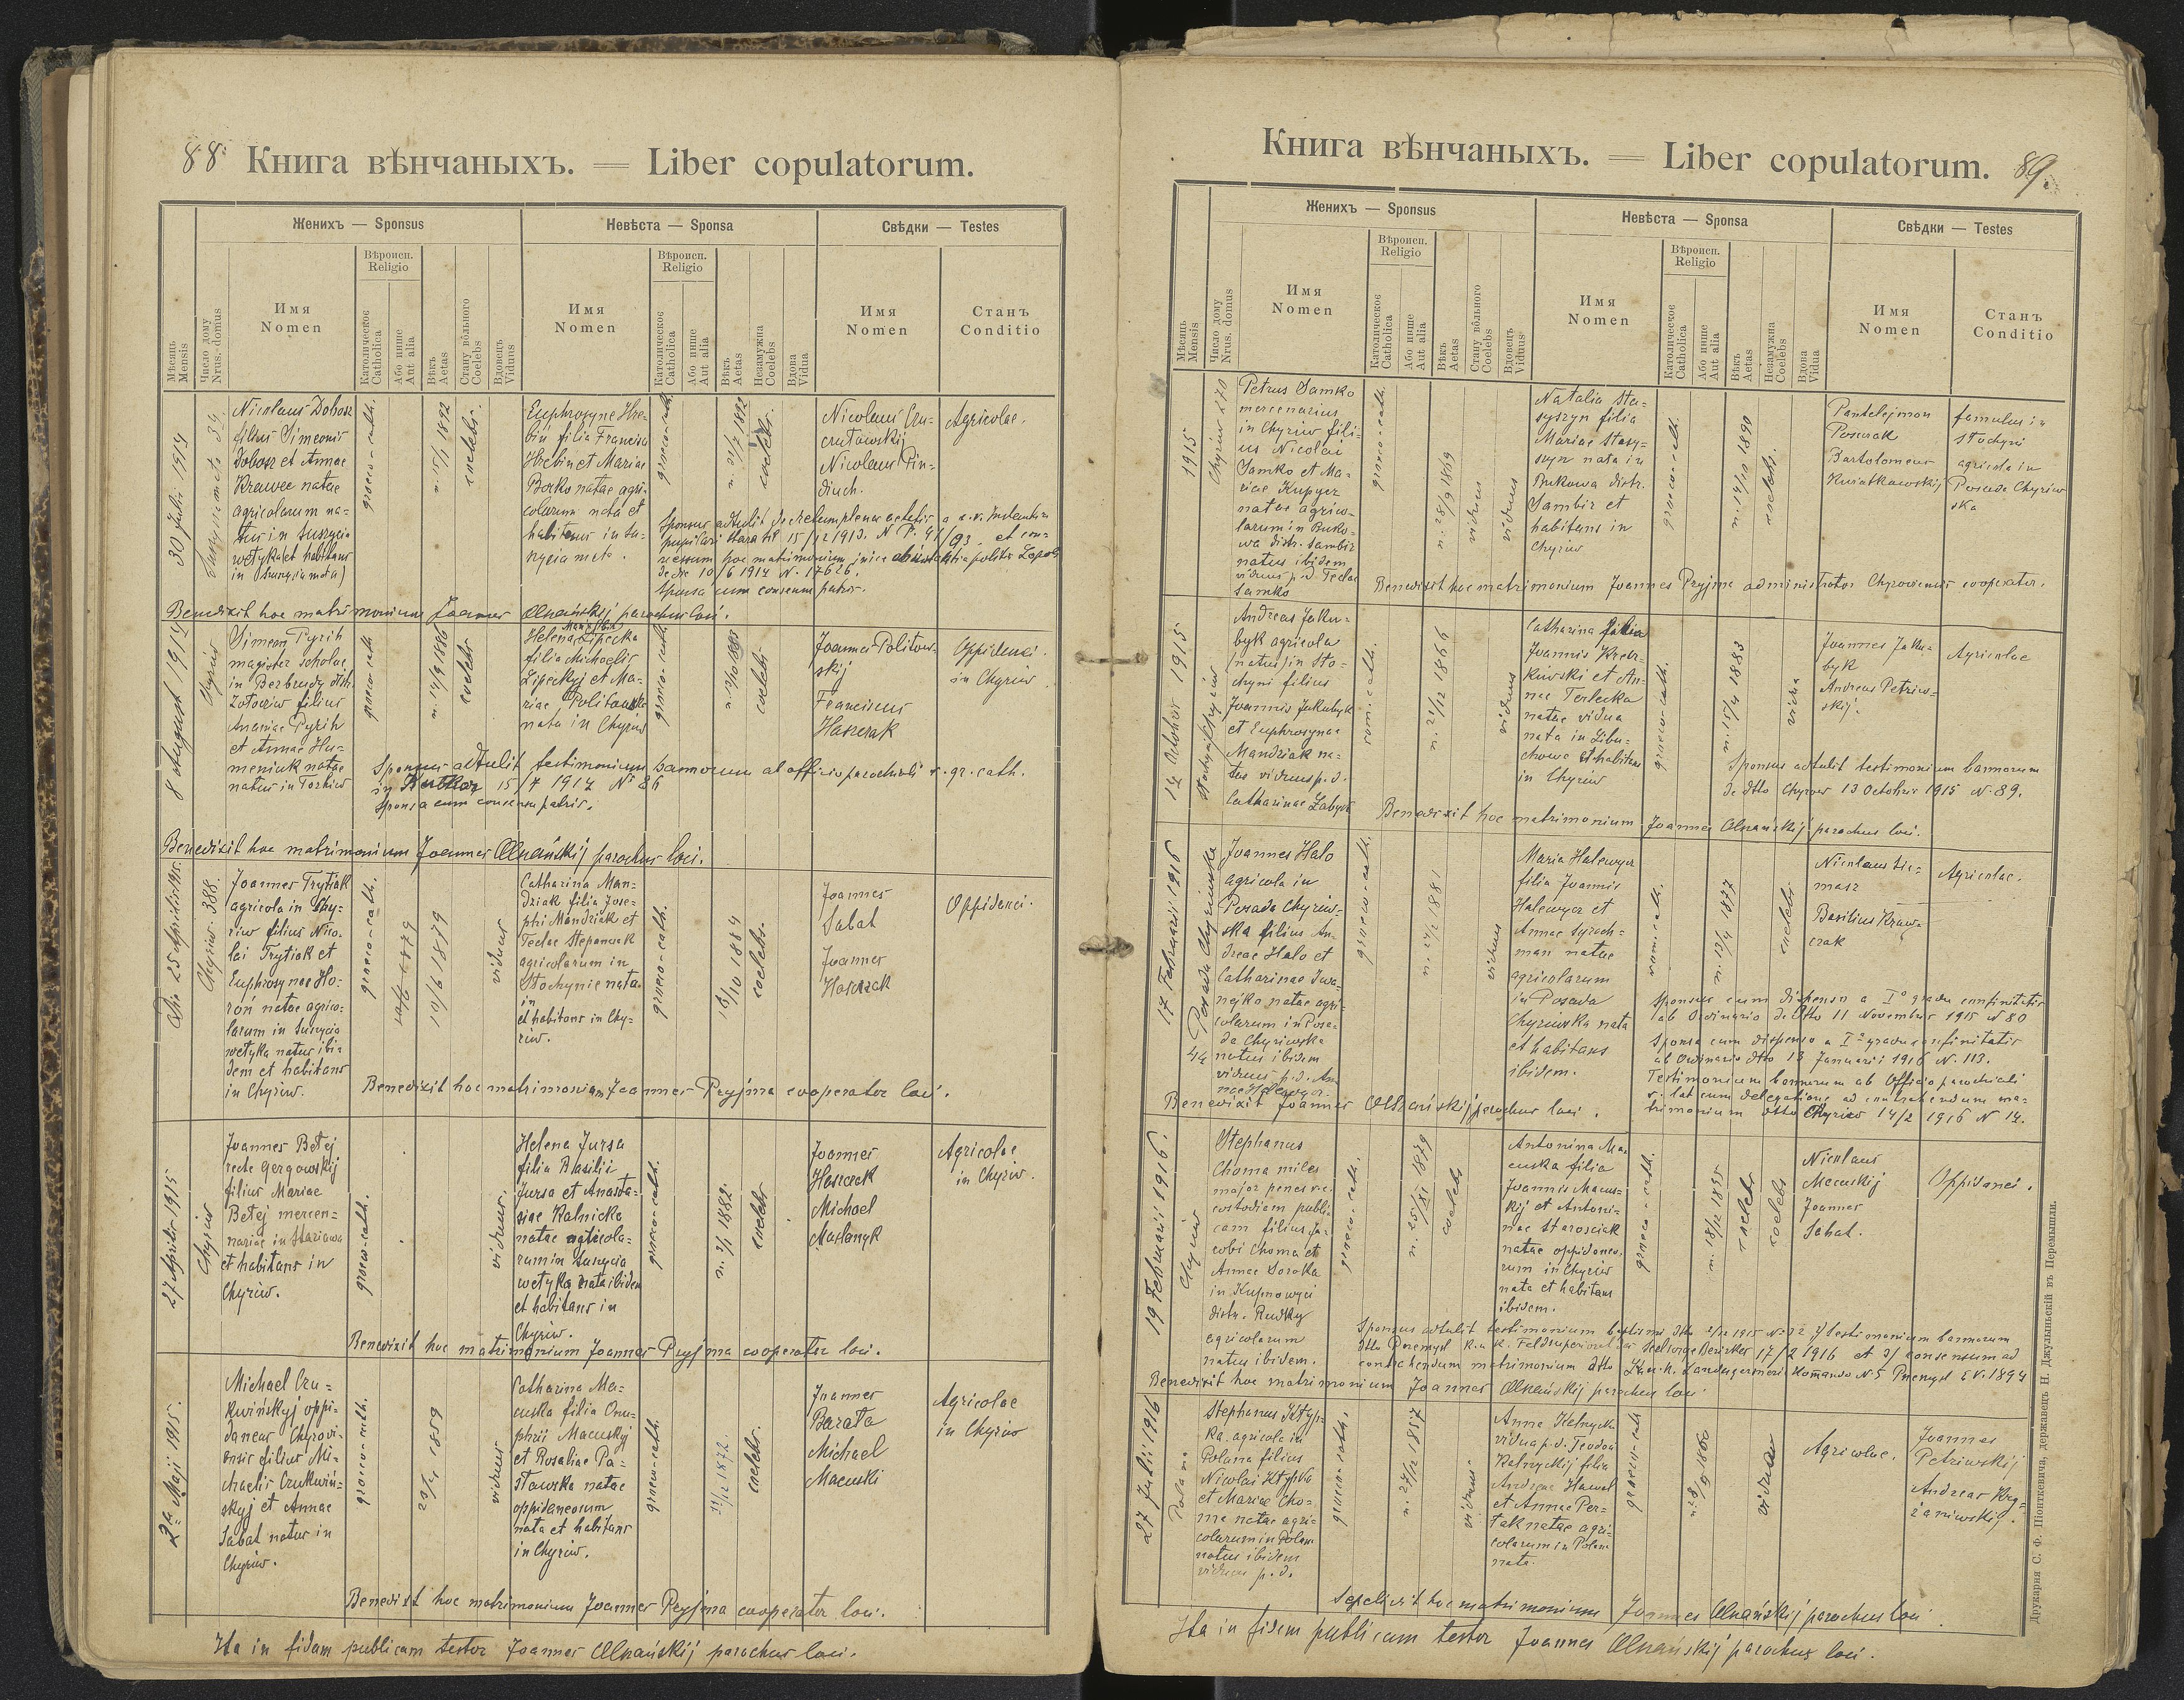 88. Книга вѣнчаныхъ. — Liber copulatorum.
Женихъ — Sponsus
Невѣста — Sponsa
Свѣдки — Testes
Мѣсяць
Mensis
Число дому
Nrus. domus
Имя
Nomen
Вѣроисп.
Religio
Католическое
Catholica
Або инше
Aut alia
Вѣкъ
Aetas
Стану вôльного
Coelebs
Вдовець
Viduus
Имя
Nomen
Вѣроисп.
Religio
Католическое
Catholica
Або инше
Aut alia
Вѣкъ
Aetas
Незамужна
Coelebs
Вдова
Vidua
Имя
Nomen
Станъ
Conditio
30 Julii 1914
Nicolaus Dobosz
filius Simeonis
Dobosz et Annae
Krawec natae
agricolarum na-
tus in Suszycia
wełyka et habitans
graeco-cath.
n. 5/1 1892
coelebs.
Euphrosyne Hre-
bin filia Francisci
Hrebin et Mariae
Borko natae agri-
colarum nata et
habitans in Su-
graeco-cath.
coelebs.
Nicolaus
Nicolaus Pin-
diuch.
Agricolae.
de die 10/6 1914 N. 17626.
Sponsa cum consensu patris.
Benedixit hoc matrimonium Joannes parochus loci.
8 August 1914
Chyriw
Simeon Pyrih
magister scholae
in
filius
Ananiae Pyrih
et Annae Hu-
meniuk natae
natus in
graeco-cath.
n. 14/9 1886
coelebs
Helena Lipecka
filia Michaelis
Lipeckyj et Ma-
riae
nata in Chyriw
graeco-cath.
coelebs
Joannes Politow-
skij
Franciscus
Haszczak
Oppidanei.
in Chyriw.
Sponsus adtulit testimonium bannorum ab officio parochiali r. gr. cath.
in 15/7 1914 N 86
Sponsa cum consensu patris.
Benedixit hoc matrimonium Joannes parochus loci.
25 Aprilis 1915.
Chyriw. 388.
Joannes Trytiak
agricola in Chy-
riw filius Nico-
lai Trytiak et
Euphrosynae Ho-
roń natae agrico-
larum in Suszycia
wełyka natus ibi-
dem et habitans
in Chyriw.
graeco-cath.
10/6 1879
10/6 1879
viduus
Catharina Man-
dziak filia Jose-
phi Mandziak et
Teclae Stepaniak
agricolarum in
Stochynie nata
in
et habitans in Chy-
riw.
graeco-cath.
coelebs.
Joannes
Sabat
Joannes
Haszczak
Oppidanei.
Benedixit hoc matrimonium Joannes Pryjma cooperator loci.
27 Aprilis 1915
Chyriw
Joannes Betej
recte Gergowskij
filius Mariae
Betej mercen-
nariae in Stariawa
et habitans in
Chyriw.
graeco-cath.
viduus.
Helena Jursa
filia Basilii
Jursa et Anasta-
siae Kalnicka
natae agricola-
rum in Suszycia
wełyka nata ibidem
et habitans in
Chyriw.
graeco-cath.
n. 2/1 1882.
coelebs
Joannes
Haszczak
Michael
Masłanyk
Agricolae
in Chyriw.
Benedixit hoc matrimonium Joannes Pryjma cooperator loci.
2 Maji 1915.
Michael Cru-
kwińskyj oppi-
daneus Chyrovi-
ensis filius Mi-
chaelis Crukwiń-
skyj et Annae
Sabat natus in
Chyriw.
graeco-cath.
viduus
Catharina Ma-
cuska filia Onu-
phrii Macuskyj
et Rosaliae Pa-
sławska natae
oppidaneorum
nata et habitans
in Chyriw.
graeco-cath.
11/12 1872.
coelebs.
Joannes
Barała
Michael
Macuski
Agricolae
in Chyriw
Benedixit hoc matrimonium Joannes Pryjma cooperator loci.
Ita in fidem publicam testor Joannes parochus loci.
Книга вѣнчаныхъ. — Liber copulatorum. 89.
Женихъ — Sponsus
Невѣста — Sponsa
Свѣдки — Testes
Мѣсяць
Mensis
Число дому
Nrus. domus
Имя
Nomen
Вѣроисп.
Religio
Католическое
Catholica
Або инше
Aut alia
Вѣкъ
Aetas
Стану вôльного
Coelebs
Вдовець
Viduus
Имя
Nomen
Вѣроисп.
Religio
Католическое
Catholica
Або инше
Aut alia
Вѣкъ
Aetas
Незамужна
Coelebs
Вдова
Vidua
Имя
Nomen
Станъ
Conditio
1915
Chyriw 270
Petrus Samko
mercenarius
in Chyriw fili-
us Nicolai
Samko et Ma-
riae Kupycz
natae agrico-
larum in Buko-
wa distr. Sambir
natus ibidem
viduus p. d. Teclae
Samko
graeco-cath.
n. 28/6 1869
viduus
viduus
Natalia Sta-
syszyn filia
Mariae Stasy-
szyn nata in
Bukowa distr.
Sambir et
habitans in
Chyriw
graeco-cath.
n. 14/10 1890
coelebs.
Pantelejmon
Bartolomeus
Kwiatkowskij
famulus in
Stochyni
agricola in
Posada Chyriw
ska
Benedixit hoc matrimonium Joannes Pryjma administrator Chyroviensis cooperator.
14 October 1915
Andreas Jaku-
byk agricola
natus in Sto-
chyni filius
Joannis Jakubyk
et Euphrosynae
Mandziak na-
tus viduus p. d.
Catharinae
rom.-cath.
n. 12/12 1866
viduus
Catharina filia
Joannis
et An-
nae Terlecka
natae vidua
nata in Libu-
chowe et habitans
in Chyriw
graeco-cath.
n. 15/4 1883
vidua
Joannes Jaku-
byk
Andreas Petriw-
skij.
Agricolae
Sponsus adtulit testimonium bannorum
de dtto Chyrow 13 Octobris 1915 N. 89.
Benedixit hoc matrimonium Joannes parochus loci.
17 Februarii 1916
Posada Chyriwska
Joannes Halo
agricola in
Posada Chyriw-
ska filius An-
dreae Halo et
Catharinae Iwa-
nejko natae agri-
colarum in Posa-
da Chyriwska
natus ibidem
viduus p. d. An-
graeco-cath.
n. 24/2 1881
viduus
Maria Halewycz
filia Joannis
Halewycz et
Annae Syroch-
man natae
agricolarum
in Posada
Chyriwska nata
et habitans
ibidem.
rom.-cath.
n. 13/4 1877
coelebs
Nicolaus
masz
Basilius Kraw-
czak
Agricolae.
Sponsus cum dispensa a I° gradu affinitatis
ab Ordinario de dtto 11 Novembris 1915 N 80
Sponsa cum dispensa a I° gradu affinitatis
ab Ordinario dtto 13 Januarii 1916 N. 113.
Testimonium bannorum ab Officio parochiali
r. lat cum delegatione ad contrahendum ma-
trimonium dtto Chyriw 14/2 1916 N 14.
Benedixit Joannes parochus loci.
19 Februarii 1916.
Chyriw
Stephanus
Choma miles
major penes
custodiam publi-
cam filius Ja-
cobi Choma et
Annae Soroka
in Kupnowyci
distr. Rudky
agricolarum
natus ibidem.
graeco-cath.
n. 25/XI 1879
coelebs
Antonina Ma-
cuska filia
Joannis Macus-
kij et Antoni-
nae Starosciak
natae oppidaneo-
rum in Chyriw
nata et habitans
ibidem.
graeco-cath.
n. 18/12 1895
coelebs
coelebs
Nicolaus
Macuskij
Joannes
Sabat.
Oppidanei.
Benedixit hoc matrimonium Joannes parochus loci.
27 Julii 1916
Polana
Stephanus
agricola in
Polana filius
Nicolai
et Mariae Cho-
ma natae agri-
colarum in Polana
natus ibidem
viduus p. d.
graeco-cath.
n. 27/12 1857
viduus
Anna Kalnycka
vidua p. d. Teodori
Kalnyckij filia
Andreae Hawal
et Annae Per-
tak natae agri-
colarum in Polana
nata.
graeco-cath
vidua
Agricolae.
Joannes
Petriwskij
Andreas Kry-
żaniwskij.
hoc matrimonium Joannes parochus loci.
Ita in fidem publicam testor Joannes parochus loci.
Друкарня С. Ф. Піонткевича, державець Н. Джулыньскій въ Перемышли.